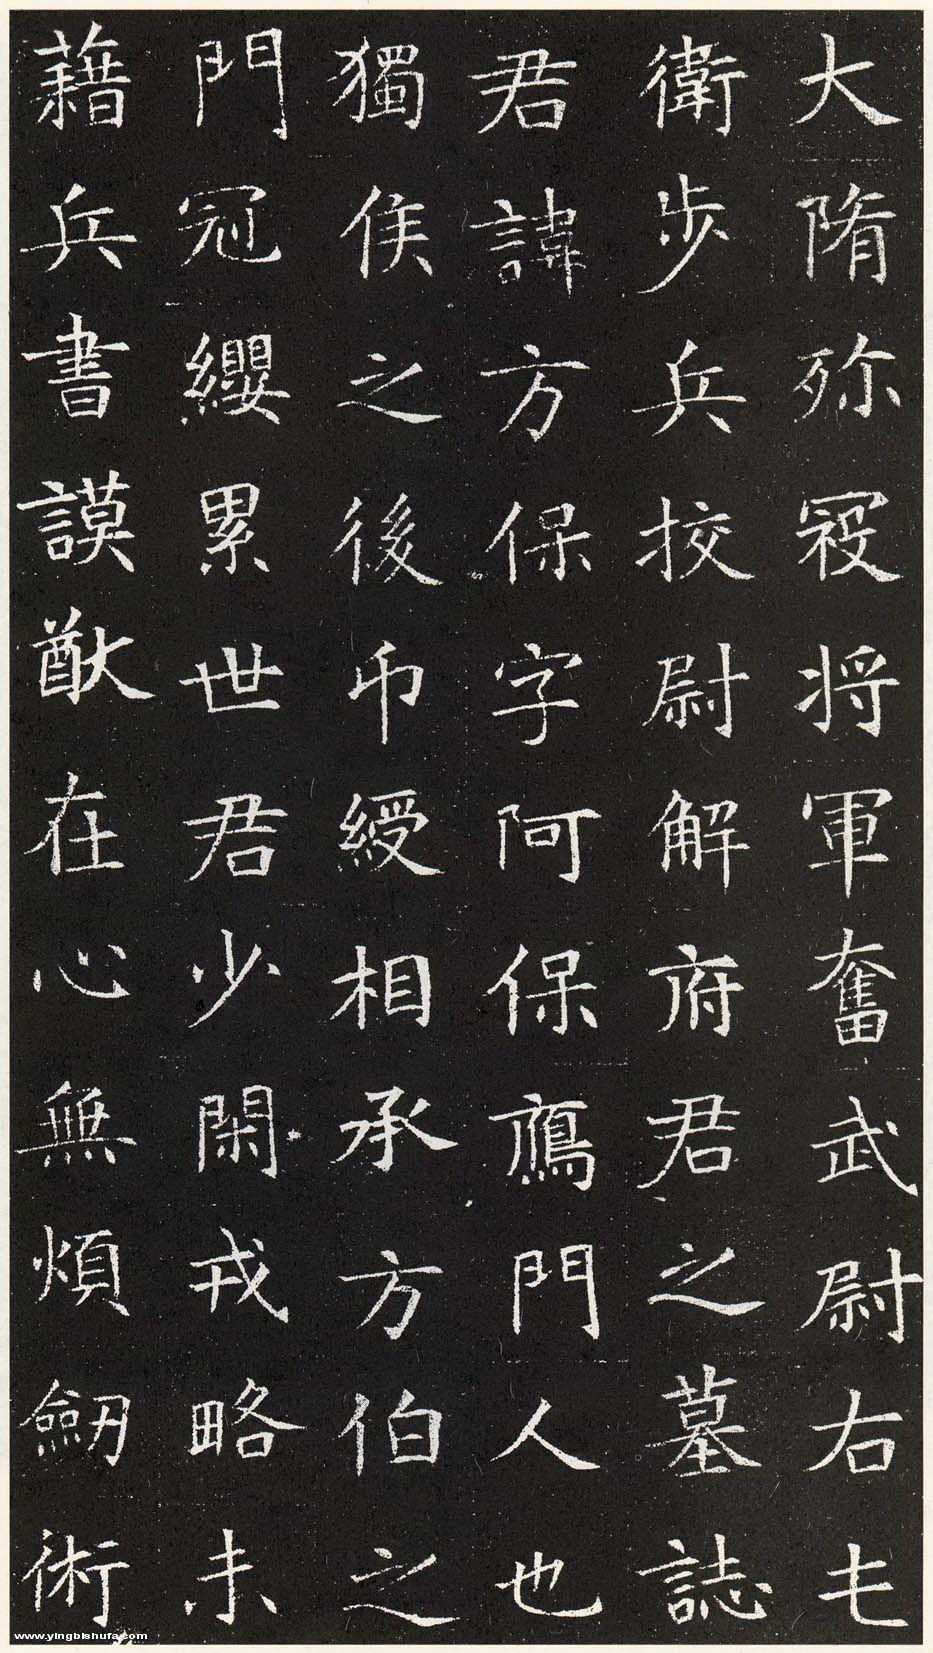 大隋殄寇将軍奮武尉右㐌
衛步兵挍尉解府君之墓誌
君諱方保字阿保鴈門人也
獨侯之後印綬相承方伯之
門冠纓累世君少閑戎略未
藉兵書謨猷在心無煩劒術
www.yingbishufa.com